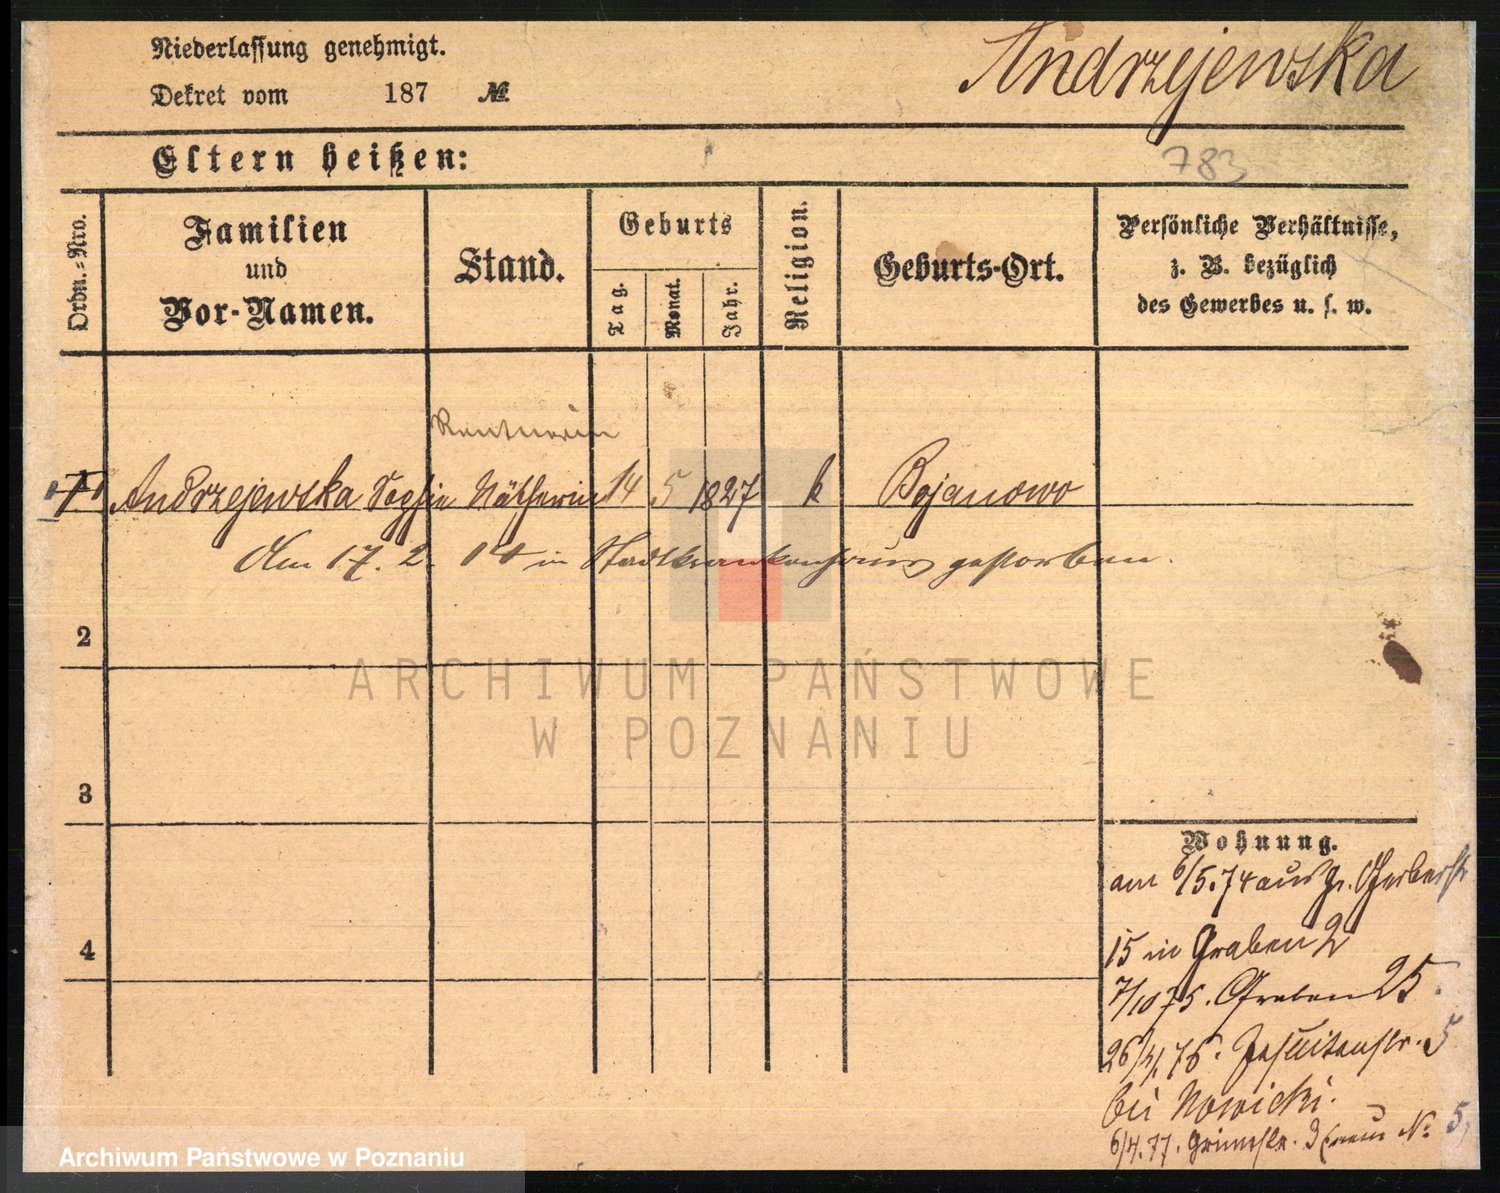 Niederlassung genehmigt.
Dekret vom 187 №
Andrzejewska
Eltern heißen:
783
Ordn.-Nro.
Familien
und
Vor-Namen.
Stand.
Geburts
Tag.
Monat.
Jahr.
Religion.
Geburts-Ort.
Persönliche Verhältnisse,
z. B. bezüglich
des Gewerbes u. s. w.
Rentnerin
1 Andrzejewska Sophie Nätherin 14 5 1827 k Bojanowo
Am 17. 2. 14 in Stadtkrankenhaus gestorben.
2
3
4
ARCHIWUM PAŃSTWOWE
W POZNANIU
Wohnung.
am 6/5.74 aus Gr. Gerberstr
15 in Graben 2
7/10 75. Graben 25.
26/4.76. Jesuitenstr. 5
bei Nowicki.
6/4.77. Grünestr. № 5,
Archiwum Państwowe w Poznaniu